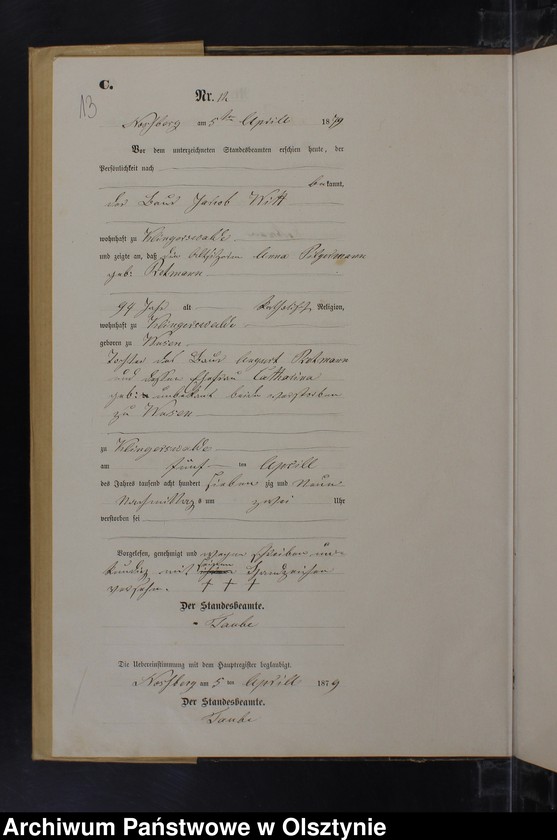 C.
13
Nr. 12
am 5ten Aprill 1879
Vor dem unterzeichneten Standesbeamten erschien heute, der
Persönlichkeit nach
bekannt,
der Baur Jacob Witt
wohnhaft zu Klingerswalde
und zeigte an, daß die Altsitzerin Anna
geb: Rotmann
99 Jahr alt Katholisch Religion,
wohnhaft zu Klingerswalde
geboren zu Wusen
Tochter des Baur August Rotmann
und dessen Ehefrau Catharina
geb: unbekant beide verstorben
zu Wusen
zu Klingerswalde
am fünf ten Aprill
des Jahres tausend acht hundert sieben zig und Neun
Nachmittags um zwei Uhr
verstorben sei
Vorgelesen, genehmigt und wegen schreiben un-
kundig mit Handzeichen
versehn. + + +
Der Standesbeamte.
Taube
Die Uebereinstimmung mit dem Hauptregister beglaubigt.
am 5 ten Aprill 1879
Der Standesbeamte.
Taube
Archiwum Państwowe w Olsztynie